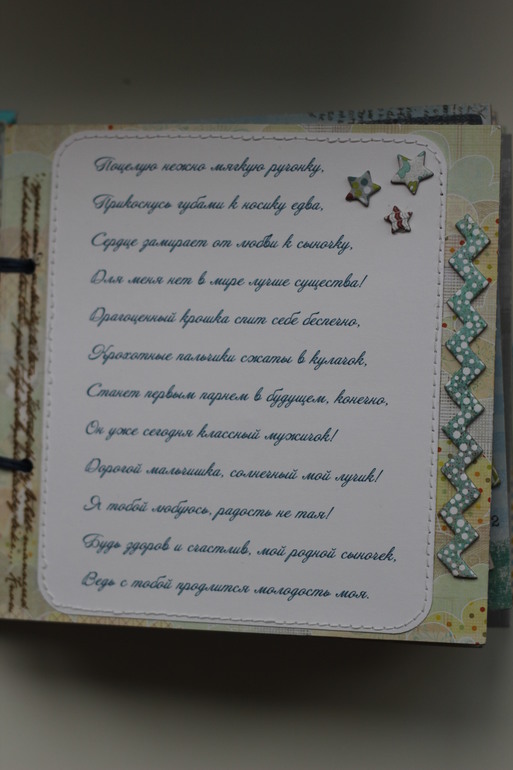 Поцелую нежно мягкую ручонку,
Прикоснусь губами к носику едва,
Сердце замирает от любви к сыночку,
Для меня нет в мире лучше существа!
Драгоценный крошка спит себе беспечно,
Крохотные пальчики сжаты в кулачок,
Станет первым парнем в будущем, конечно,
Он уже сегодня классный мужичок!
Дорогой мальчишка, солнечный мой лучик!
Я тобой любуюсь, радость не тая!
Будь здоров и счастлив, мой родной сыночек,
Ведь с тобой продлится молодость моя.